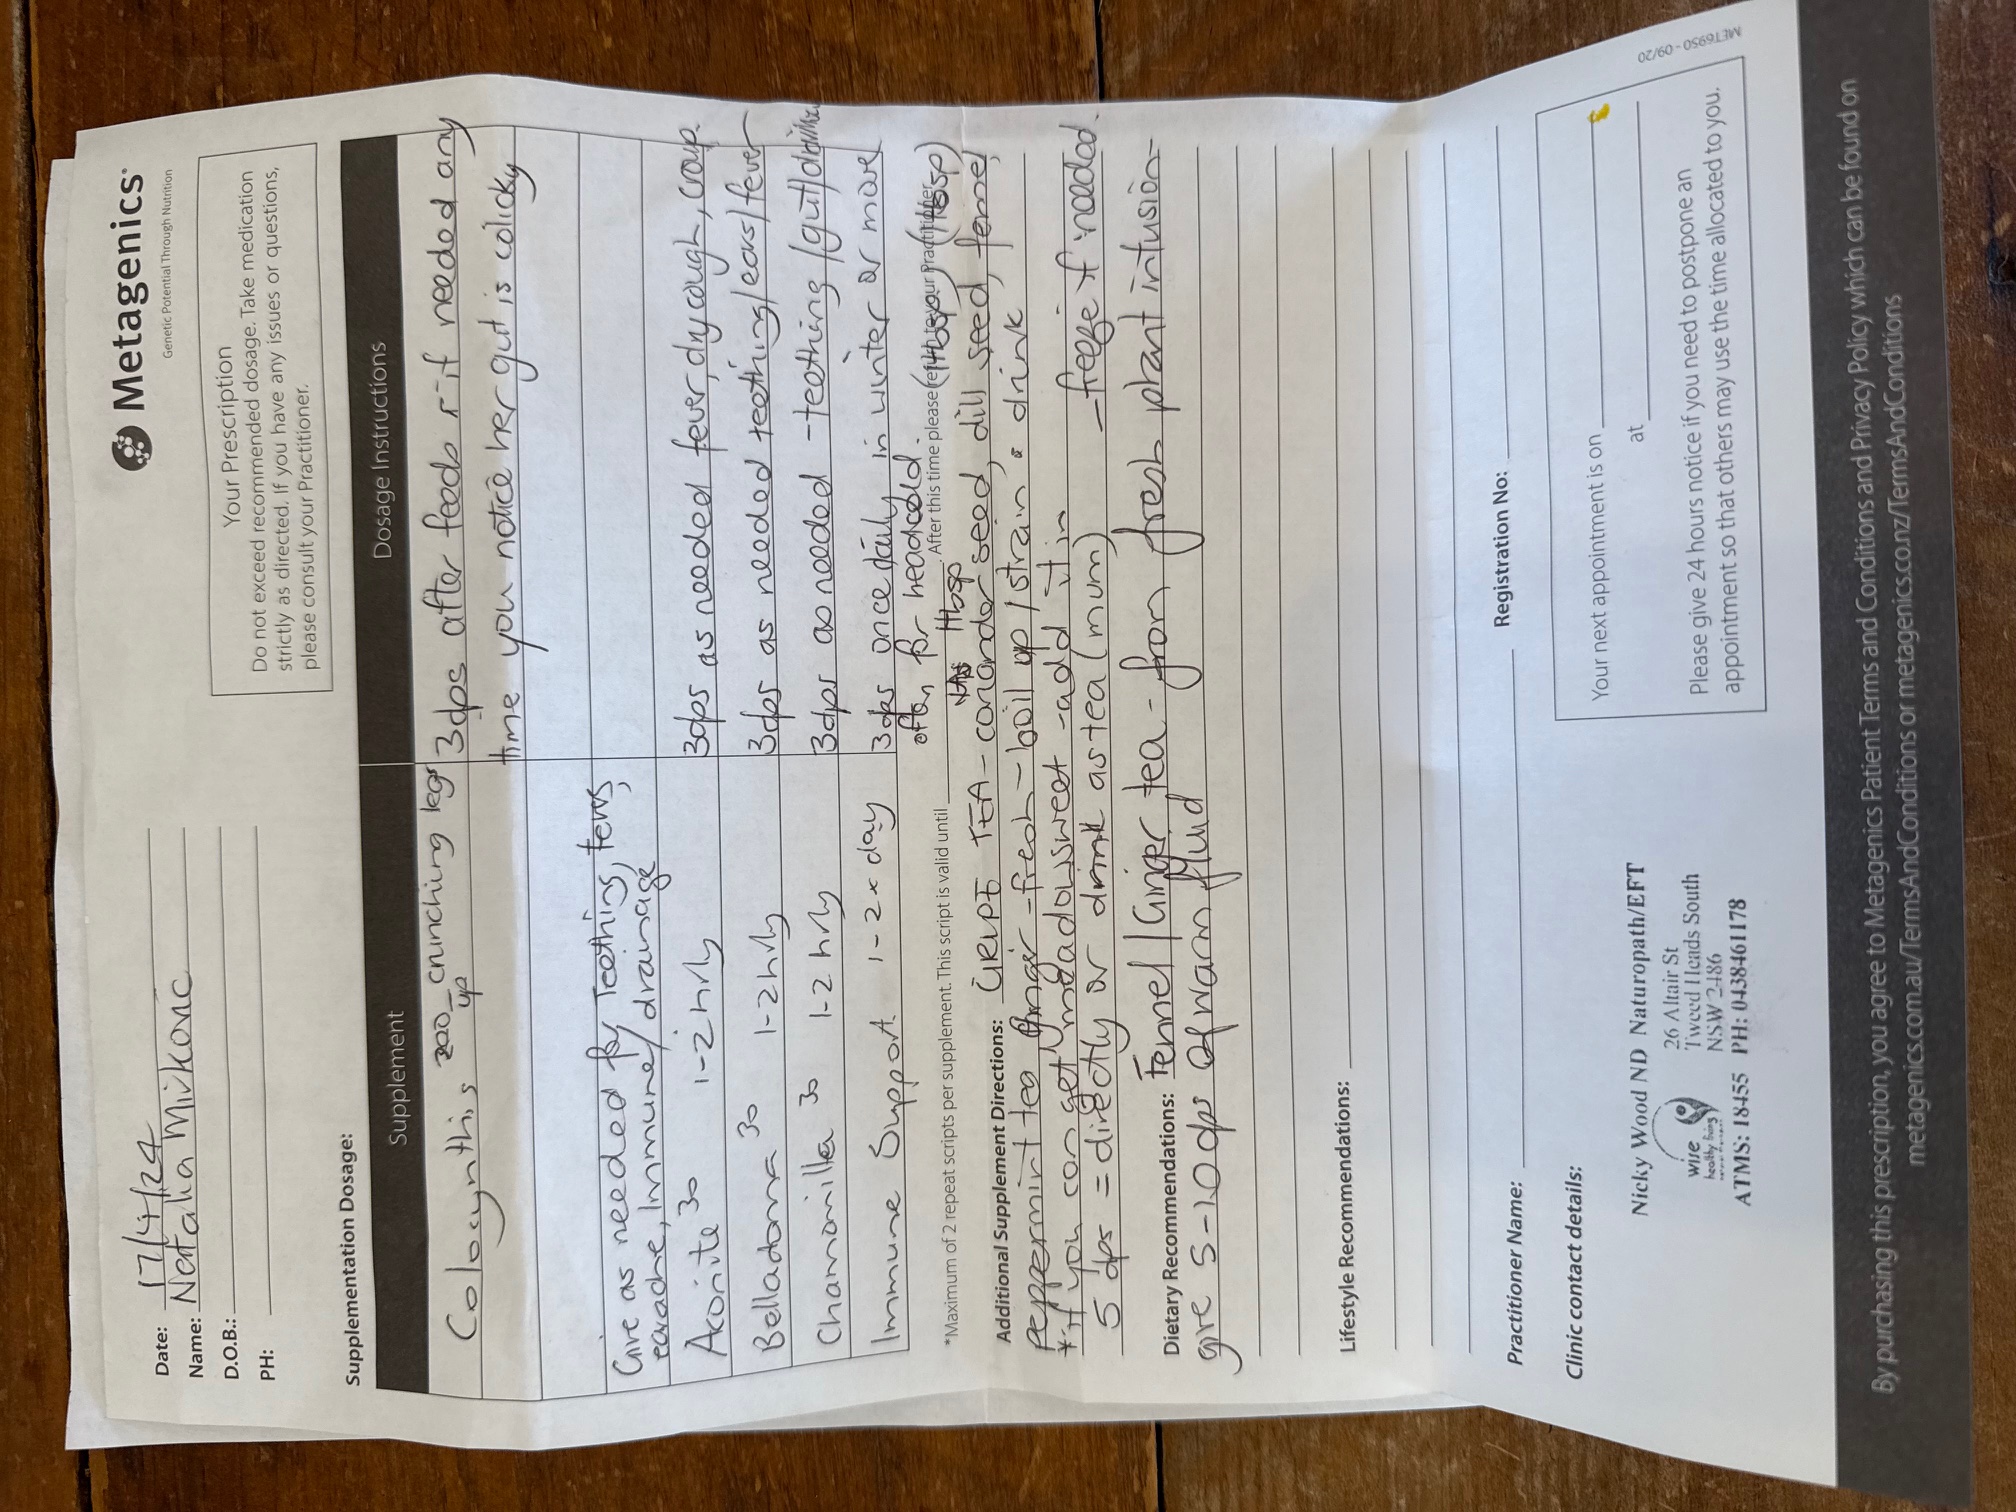 Metagenics
Genetic Potential Through Nutrition
Date: 17/4/24
Name: Natalia Mirkovic
D.O.B.:
PH:
Your Prescription
Do not exceed recommended dosage. Take medication
strictly as directed. If you have any issues or questions,
please consult your Practitioner.
Supplementation Dosage:
Supplement Dosage Instructions
Colocynthis 200 - crunching legs up 3dps after feeds r if needed any
time you notice her gut is colicky
Give as needed for Teething, fevers,
earache, Immune/drainage
Aconite 30 1-2 hrly 3dps as needed fever, dry cough, croup.
Belladonna 30 1-2 hrly 3dps as needed teething/ears/fever
Chamomilla 30 1-2 hrly 3dps as needed - teething/gut/
Immune Support 1-2x day 3dps once daily in winter or more
often for headcold.
*Maximum of 2 repeat scripts per supplement. This script is valid until After this time please return to your Practitioner
1tbsp (1tbsp) (1tbsp)
Additional Supplement Directions: TEA - coriander seed, dill seed, fennel,
peppermint tea, ginger - fresh - boil up/strain & drink
*if you can get meadowsweet - add it in - freeze if needed.
5 dps = directly or drink as tea (mum)
Dietary Recommendations: Fennel/Ginger tea - from fresh plant infusion -
give 5-10 dps of warm fluid
Lifestyle Recommendations:
Practitioner Name: Registration No:
Clinic contact details:
Nicky Wood ND Naturopath/EFT
26 Altair St
Tweed Heads South
NSW 2486
wise
healthy living
ATMS: 18455 PH: 0438461178
Your next appointment is on
at
Please give 24 hours notice if you need to postpone an
appointment so that others may use the time allocated to you.
MET6950 - 09/20
By purchasing this prescription, you agree to Metagenics Patient Terms and Conditions and Privacy Policy which can be found on
metagenics.com.au/TermsAndConditions or metagenics.co.nz/TermsAndConditions